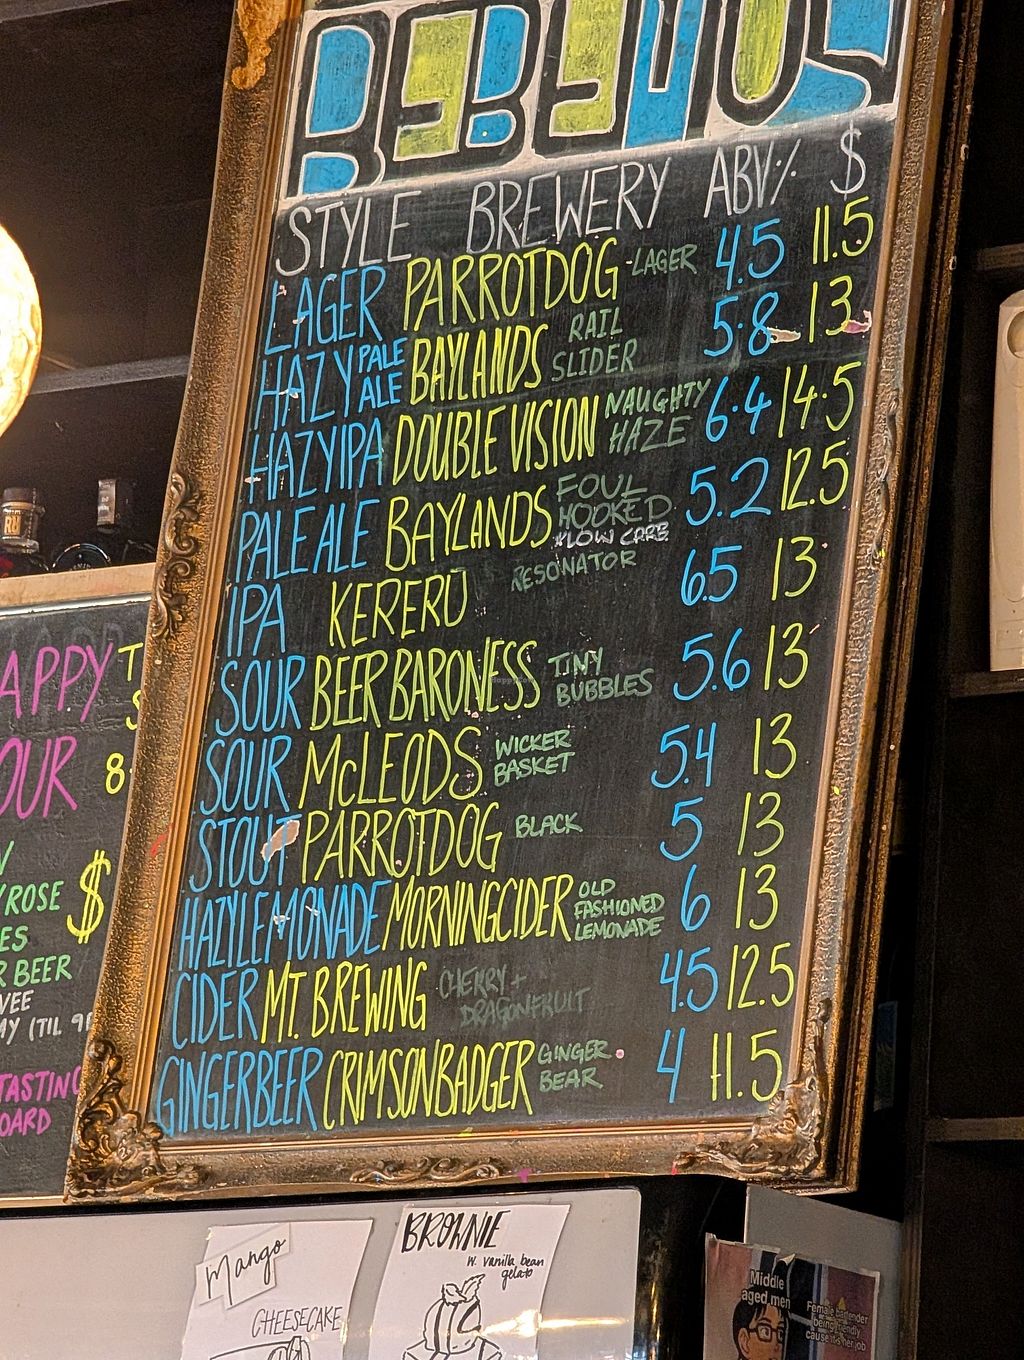 BEBEMOS
STYLE BREWERY ABV% $
LAGER PARROTDOG -LAGER 4.5 11.5
HAZY PALE ALE BAYLANDS RAIL SLIDER 5.8 13
HAZY IPA DOUBLE VISION NAUGHTY HAZE 6.4 14.5
PALE ALE BAYLANDS FOUL HOOKED *LOW CARB 5.2 12.5
IPA KERERŪ RESONATOR 6.5 13
SOUR BEER BARONESS TINY BUBBLES 5.6 13
SOUR McLEODS WICKER BASKET 5.4 13
STOUT PARROTDOG BLACK 5 13
HAZY LEMONADE MORNINGCIDER OLD FASHIONED LEMONADE 6 13
CIDER MT. BREWING CHERRY + DRAGONFRUIT 4.5 12.5
GINGERBEER CRIMSONBADGER GINGER BEAR 4 11.5
APPY T
OUR 8
ROSE $
ES
R BEER
VEE
MY (TIL 9P
TASTING
OARD
Mango
CHEESECAKE
BROWNIE
W. vanilla bean
gelato
Middle
aged men
Female bartender
being friendly
cause its her job